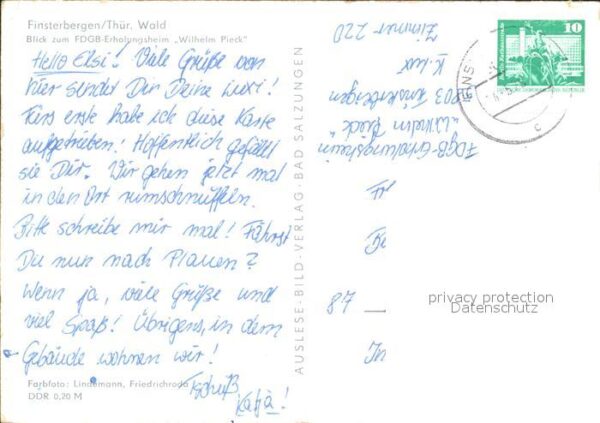 Finsterbergen/Thür. Wald
Blick zum FDGB-Erholungsheim „Wilhelm Pieck"
Hello Elsi! Viele Grüße von
hier sendet Dir Deine Luxi!
Fürs erste habe ich diese Karte
aufgetrieben! Hoffentlich gefällt
sie Dir. Wir gehen jetzt mal
in den Ort rumschnüffeln.
Bitte schreibe mir mal! Fährst
Du nun nach Plauen?
Wenn ja, viele Grüße und
viel Spaß! Übrigens, in dem
Gebäude wohnen wir!
Tschüß
Katja!
Farbfoto: Lindemann, Friedrichroda
DDR 0,20 M
AUSLESE-BILD-VERLAG · BAD SALZUNGEN
FDGB-Erholungsheim
„Wilhelm Pieck"
5803 Finsterbergen
K. Lux
Zimmer 220
10
FINS
c
87
privacy protection
Datenschutz